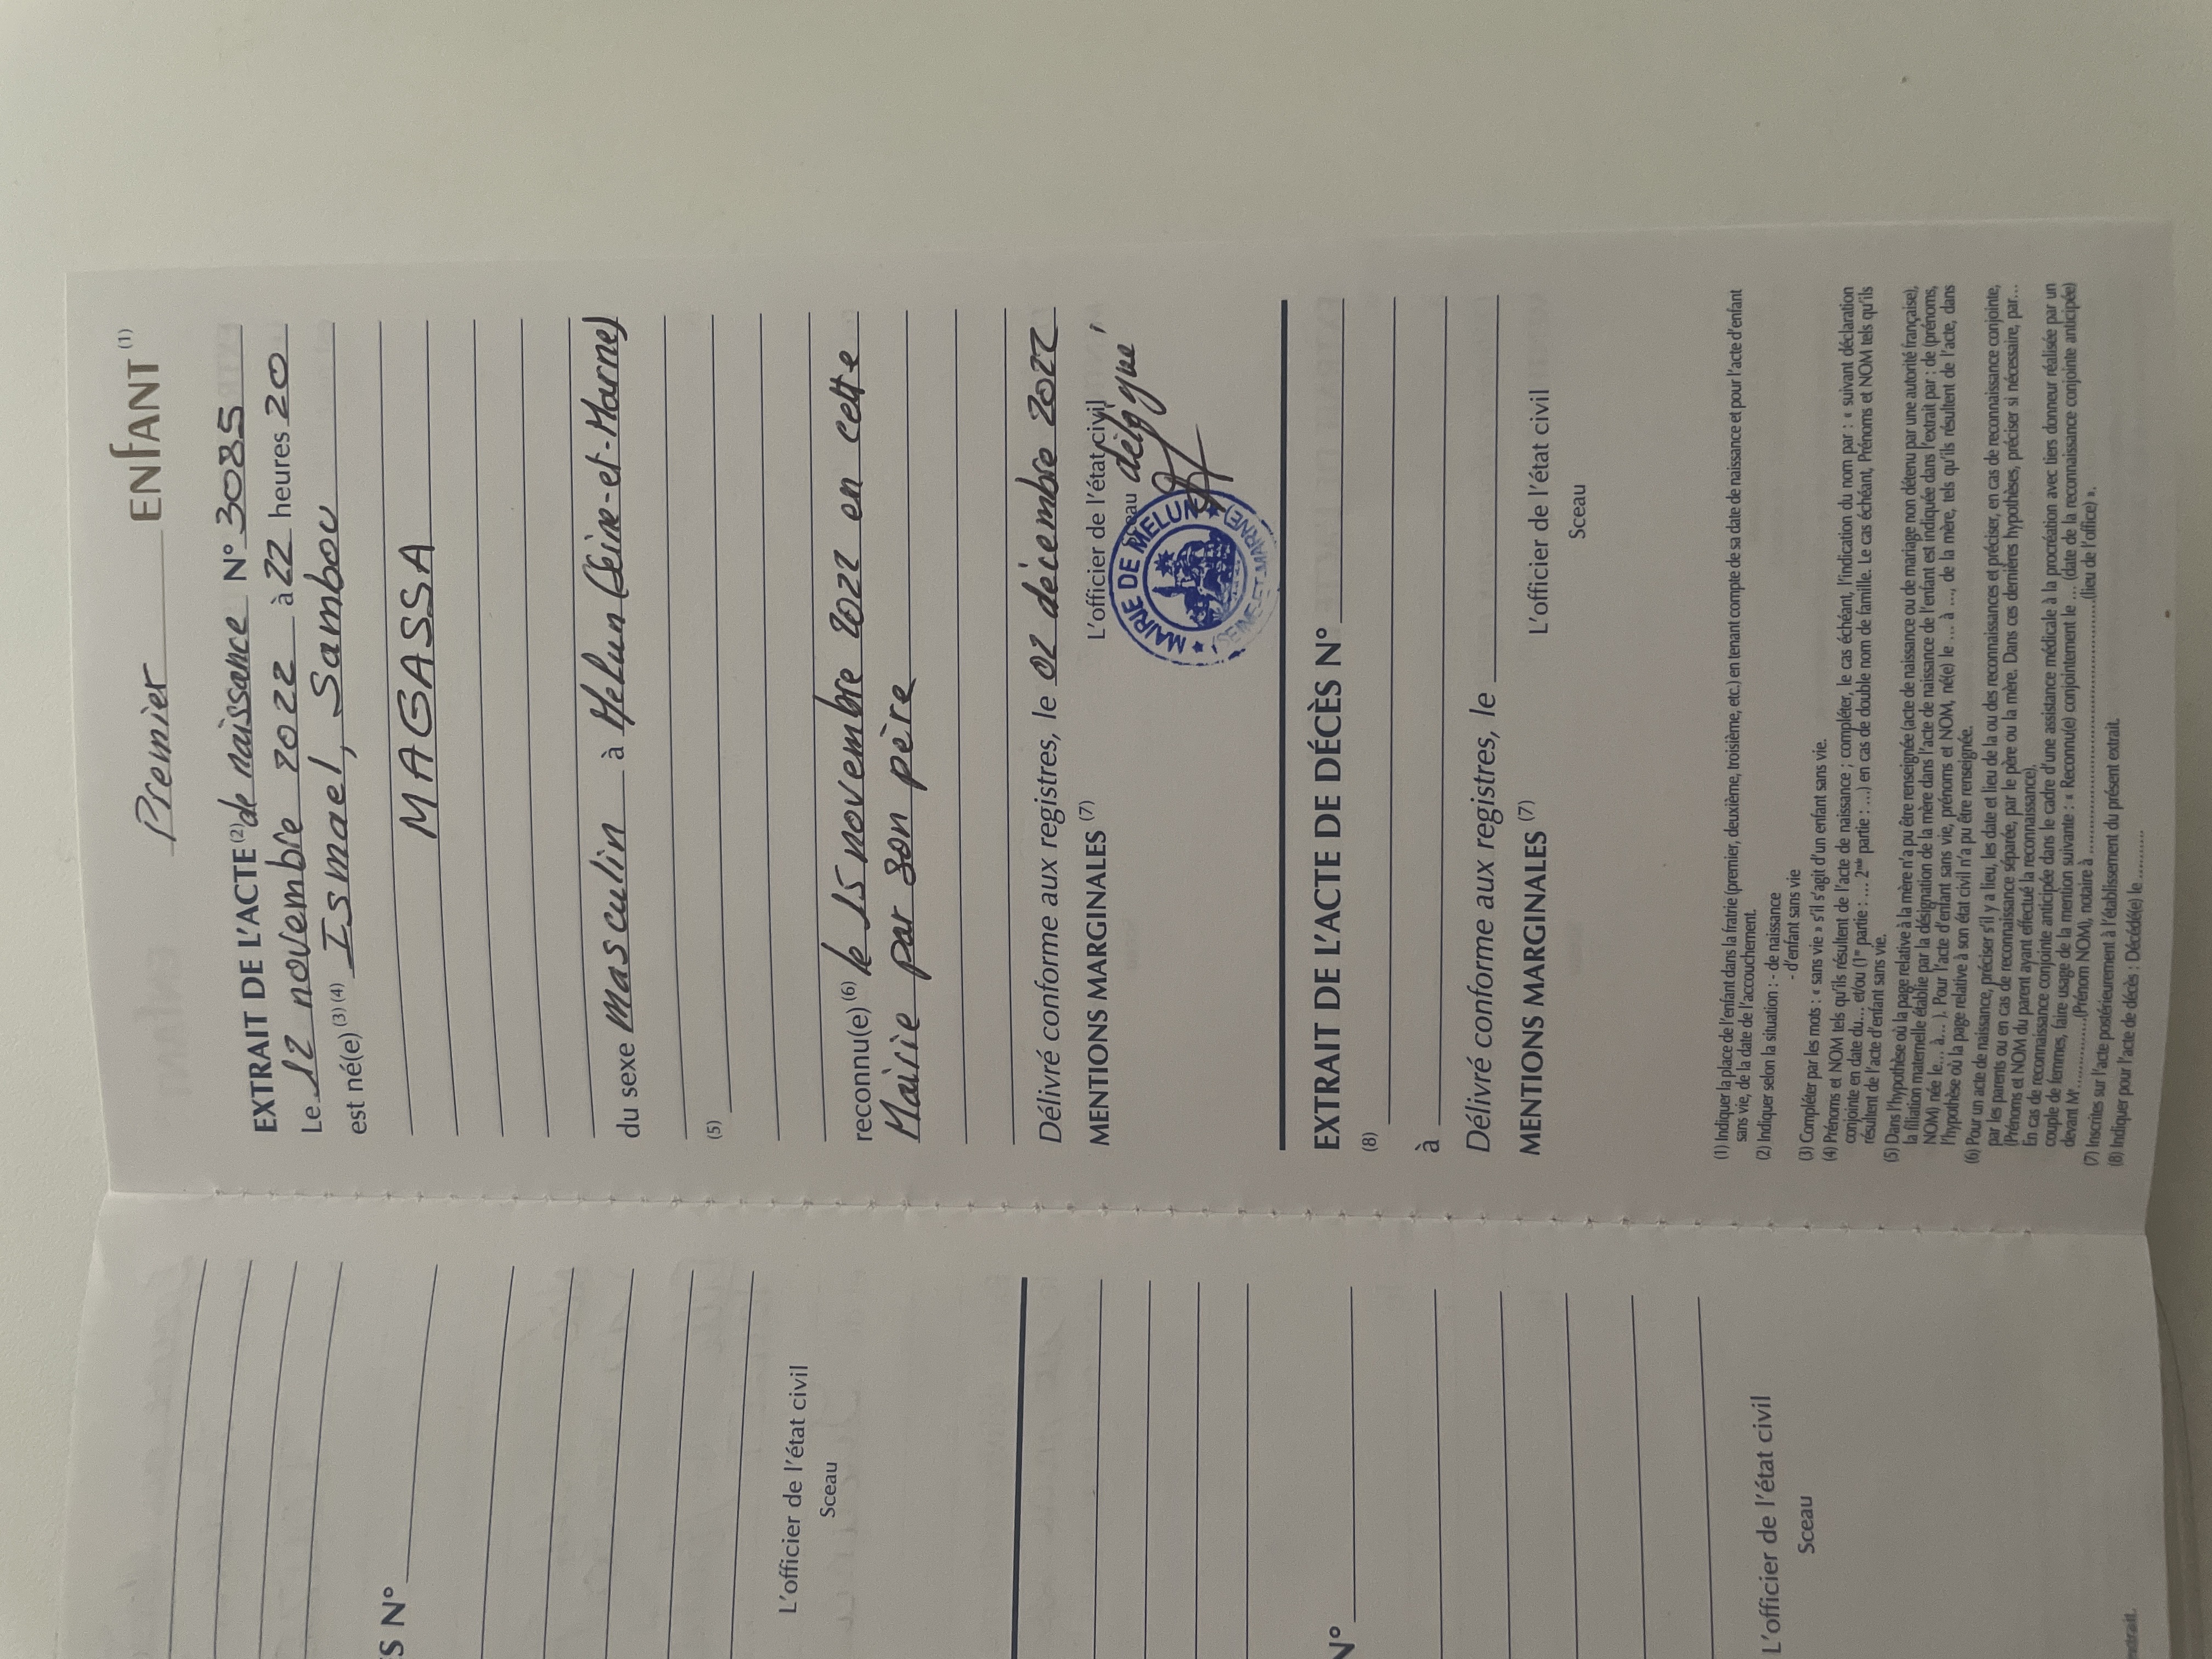 Premier ENFANT (1)
EXTRAIT DE L'ACTE (2) de naissance N° 3085
Le 12 novembre 2022 à 22 heures 20
est né(e) (3) (4) Ismael, Sambou
MAGASSA
du sexe masculin à Melun (Seine-et-Marne)
(5)
reconnu(e) (6) le 15 novembre 2022 en cette
Mairie par son père
Délivré conforme aux registres, le 02 décembre 2022
MENTIONS MARGINALES (7)
L'officier de l'état civil
Sceau délégué,
MAIRIE DE MELUN
(SEINE-ET-MARNE)
EXTRAIT DE L'ACTE DE DÉCÈS N°
(8)
à
Délivré conforme aux registres, le
MENTIONS MARGINALES (7)
L'officier de l'état civil
Sceau
(1) Indiquer la place de l'enfant dans la fratrie (premier, deuxième, troisième, etc.) en tenant compte de sa date de naissance et pour l'acte d'enfant
sans vie, de la date de l'accouchement.
(2) Indiquer selon la situation : - de naissance
- d'enfant sans vie
(3) Compléter par les mots : « sans vie » s'il s'agit d'un enfant sans vie.
(4) Prénoms et NOM tels qu'ils résultent de l'acte de naissance ; compléter, le cas échéant, l'indication du nom par : « suivant déclaration
conjointe en date du... et/ou (1re partie : ... 2nde partie : ...) en cas de double nom de famille. Le cas échéant, Prénoms et NOM tels qu'ils
résultent de l'acte d'enfant sans vie.
(5) Dans l'hypothèse où la page relative à la mère n'a pu être renseignée (acte de naissance ou de mariage non détenu par une autorité française),
la filiation maternelle établie par la désignation de la mère dans l'acte de naissance de l'enfant est indiquée dans l'extrait par : de (prénoms,
NOM) née le... à... ). Pour l'acte d'enfant sans vie, prénoms et NOM, né(e) le ... à ..., de la mère, tels qu'ils résultent de l'acte, dans
l'hypothèse où la page relative à son état civil n'a pu être renseignée.
(6) Pour un acte de naissance, préciser s'il y a lieu, les date et lieu de la ou des reconnaissances et préciser, en cas de reconnaissance conjointe,
par les parents ou en cas de reconnaissance séparée, par le père ou la mère. Dans ces dernières hypothèses, préciser si nécessaire, par...
(Prénoms et NOM du parent ayant effectué la reconnaissance).
En cas de reconnaissance conjointe anticipée dans le cadre d'une assistance médicale à la procréation avec tiers donneur réalisée par un
couple de femmes, faire usage de la mention suivante : « Reconnu(e) conjointement le ... (date de la reconnaissance conjointe anticipée)
devant Me............(Prénom NOM), notaire à ............................................(lieu de l'office) ».
(7) Inscrites sur l'acte postérieurement à l'établissement du présent extrait.
(8) Indiquer pour l'acte de décès : Décédé(e) le ...........
S N°
L'officier de l'état civil
Sceau
N°
L'officier de l'état civil
Sceau
extrait.